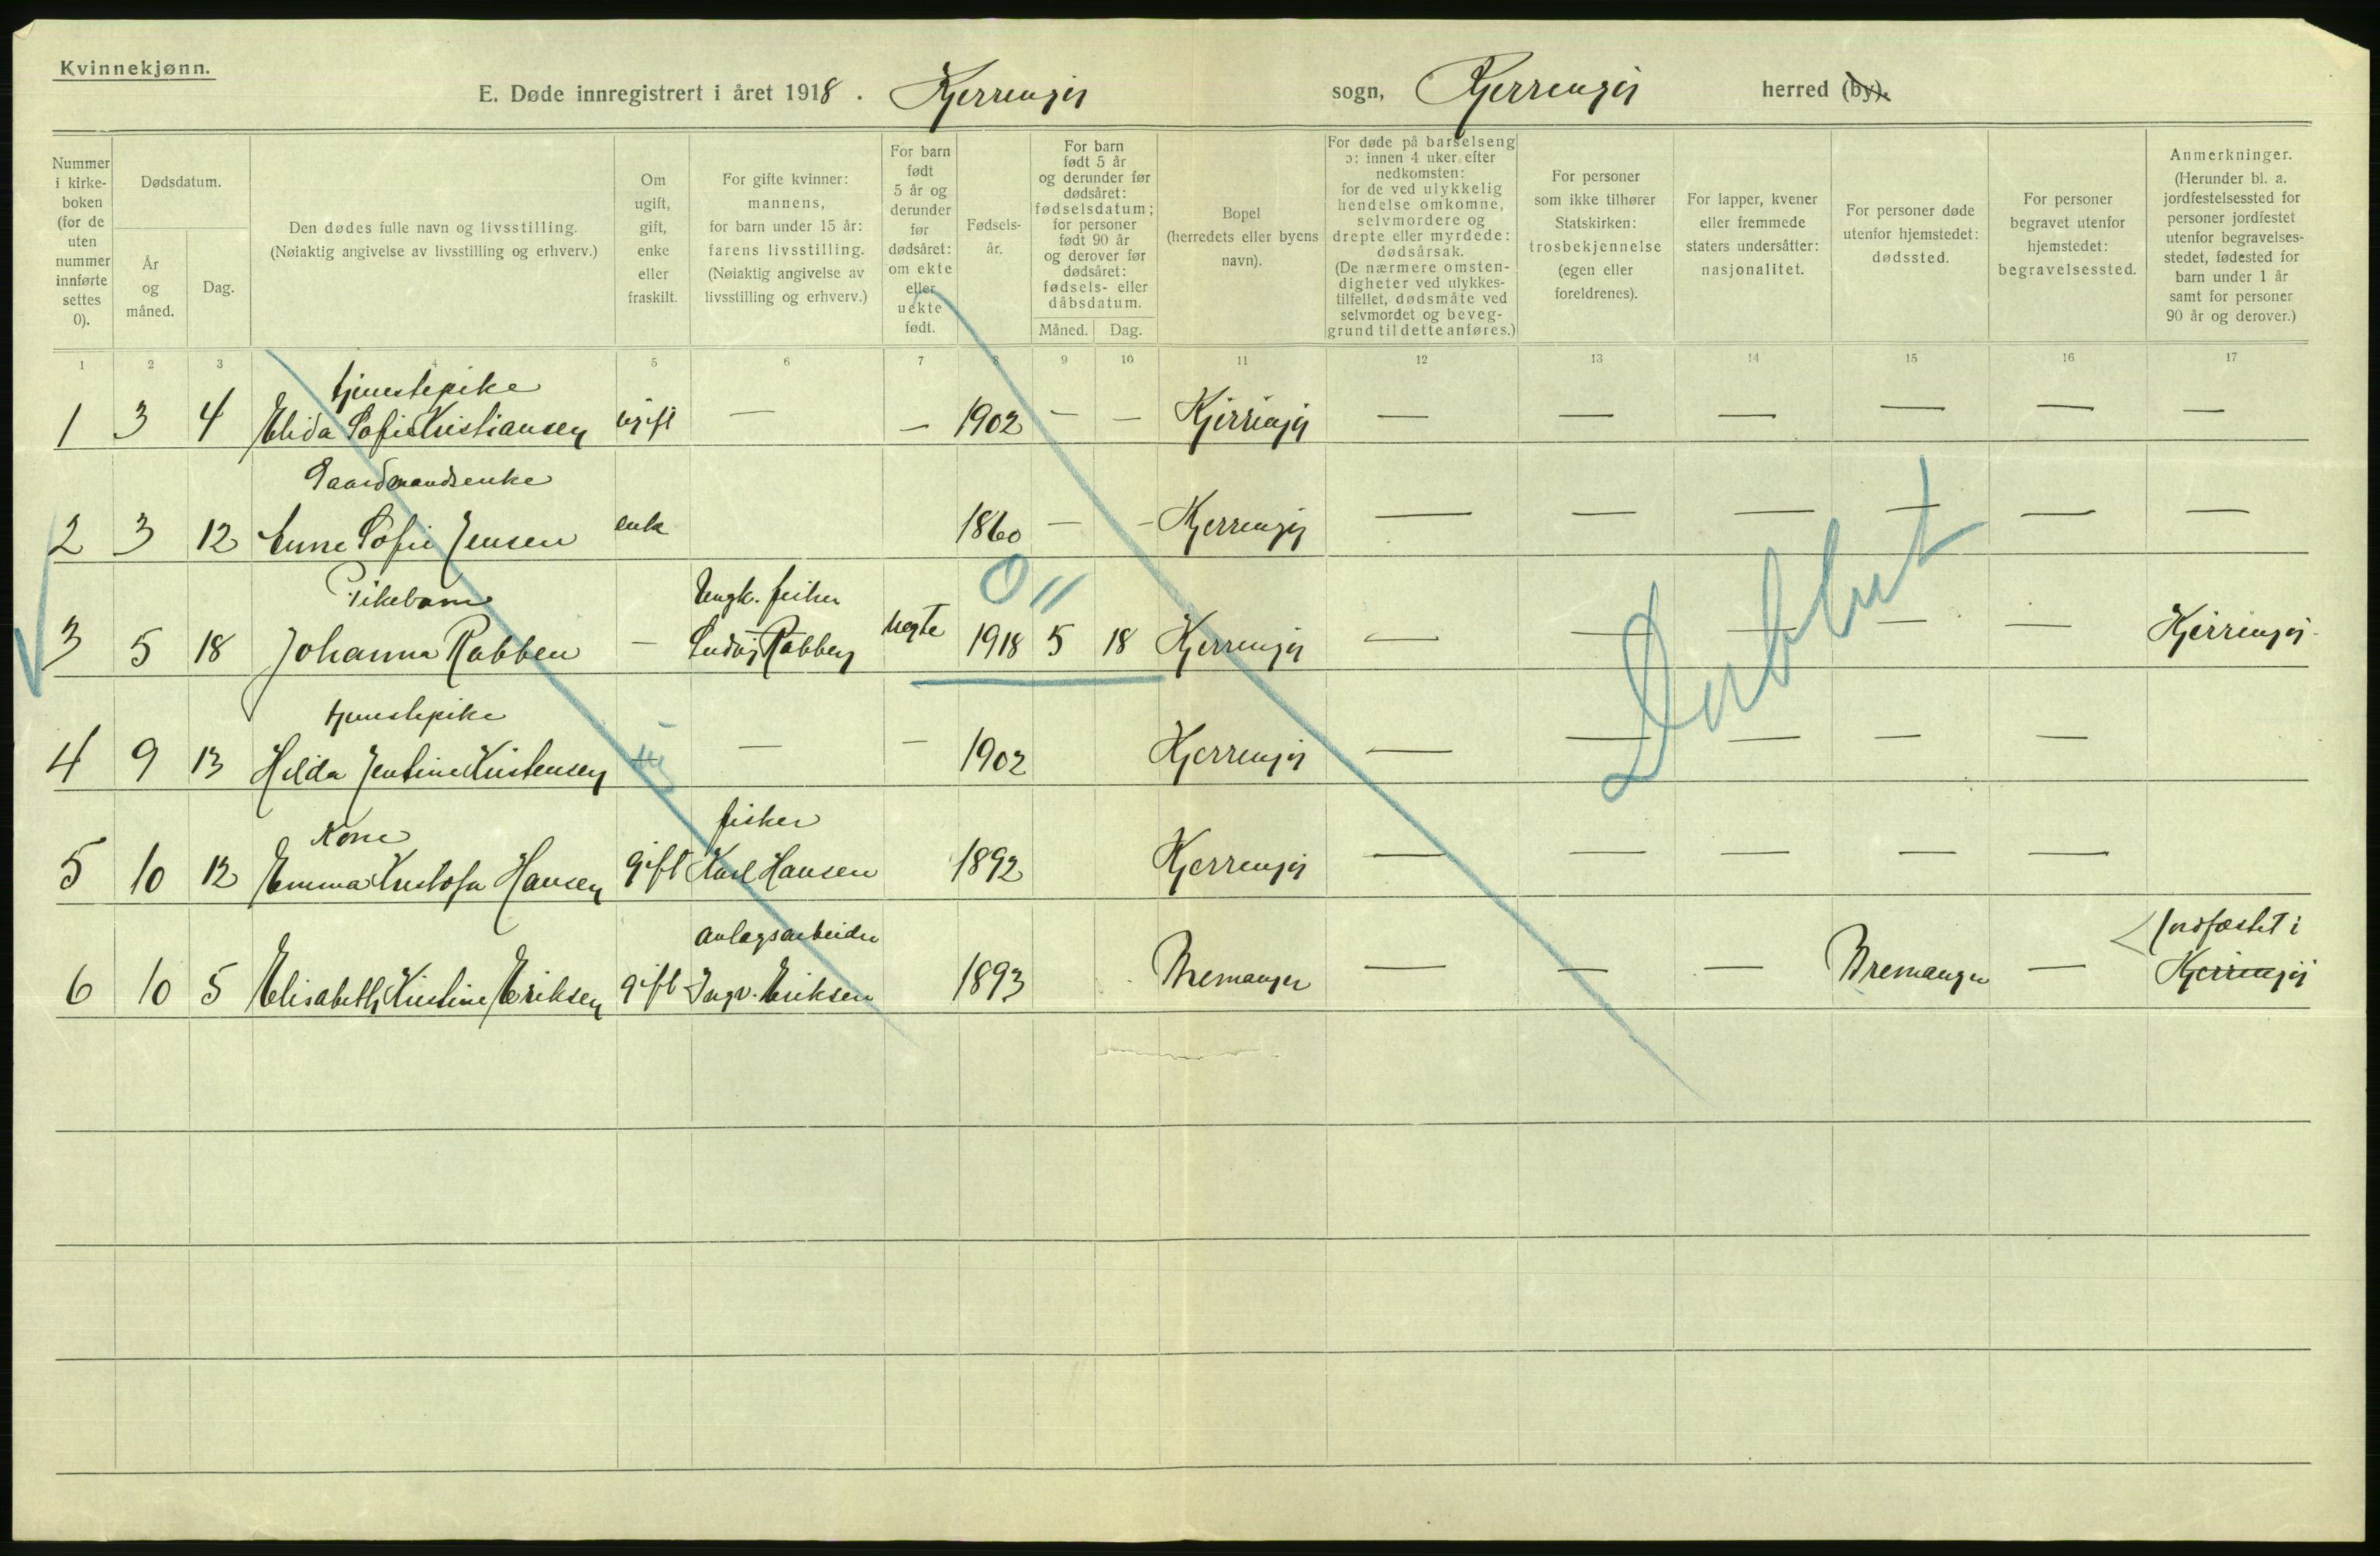 Kvinnekjønn.
E. Døde innregistrert i året 1918. Kjerringøy sogn, Kjerringøy herred (by).
Nummer i kirkeboken (for de uten nummer innførte settes 0).
Dødsdatum.
År og måned.
Dag.
Den dødes fulle navn og livsstilling.
(Nøiaktig angivelse av livsstilling og erhverv.)
Om ugift, gift, enke eller fraskilt.
For gifte kvinner: mannens, for barn under 15 år: farens livsstilling.
(Nøiaktig angivelse av livsstilling og erhverv.)
For barn født 5 år og derunder før dødsåret: om ekte eller uekte født.
Fødselsår.
For barn født 5 år og derunder før dødsåret: fødselsdatum; for personer født 90 år og derover før dødsåret: fødsels- eller dåbsdatum.
Måned. Dag.
Bopel (herredets eller byens navn).
For døde på barselseng ɔ: innen 4 uker efter nedkomsten: for de ved ulykkelig hendelse omkomne, selvmordere og drepte eller myrdede: dødsårsak.
(De nærmere omstendigheter ved ulykkestilfellet, dødsmåte ved selvmordet og beveggrund til dette anføres.)
For personer som ikke tilhører Statskirken: trosbekjennelse (egen eller foreldrenes).
For lapper, kvener eller fremmede staters undersåtter: nasjonalitet.
For personer døde utenfor hjemstedet: dødssted.
For personer begravet utenfor hjemstedet: begravelsessted.
Anmerkninger.
(Herunder bl. a. jordfestelsessted for personer jordfestet utenfor begravelsesstedet, fødested for barn under 1 år samt for personer 90 år og derover.)
1 2 3 4 5 6 7 8 9 10 11 12 13 14 15 16 17
tjenestepike
1 3 4 Elida Sofie Kristiansen ugift — — 1902 — — Kjerringøy — — — — — —
Gaardmandsenke
2 3 12 Anne Sofie Jensen enk 1860 — - Kjerringøy — — — — — —
Pikebarn Ungk. fisker
0 11
3 5 18 Johanna Rabben — Ludvig Rabben uegte 1918 5 18 Kjerringøy — — — — — Kjerringøy.
tjenestepike
4 9 13 Hilda Jentine Kristensen — — 1902 Kjerringøy — — — — —
Kone fisker
5 10 12 Emma Kristofa Hansen gift Karl Hansen 1892 Kjerringøy — — — — —
anlegsarbeider Jordfæstet i
6 10 5 Elisabeth Kristine Eriksen gift Ingv. Eriksen 1893 Bremanger — — — Bremanger — Kjerringøy
Dubbut